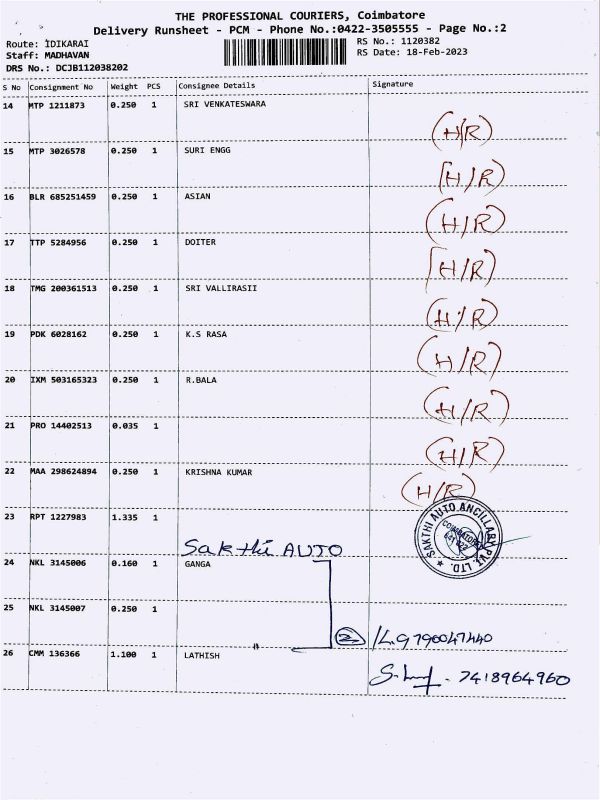 THE PROFESSIONAL COURIERS, Coimbatore
Delivery Runsheet - PCM - Phone No.:0422-3505555 - Page No.:2
Route: IDIKARAI RS No.: 1120382
Staff: MADHAVAN RS Date: 18-Feb-2023
DRS No.: DCJB112038202
S No Consignment No Weight PCS Consignee Details Signature
14 MTP 1211873 0.250 1 SRI VENKATESWARA
(H/R)
15 MTP 3026578 0.250 1 SURI ENGG
[H/R)
16 BLR 685251459 0.250 1 ASIAN
(H/R)
17 TTP 5284956 0.250 1 DOITER
[H/R)
18 TMG 200361513 0.250 1 SRI VALLIRASII
(H/R)
19 PDK 6028162 0.250 1 K.S RASA
(H/R)
20 IXM 503165323 0.250 1 R.BALA
(H/R)
21 PRO 14402513 0.035 1
(H/R)
22 MAA 298624894 0.250 1 KRISHNA KUMAR
(H/R)
23 RPT 1227983 1.335 1
Sakthi AUTO
SAKTHI AUTO ANCILLARY PVT. LTD.
COIMBATORE
641 022
24 NKL 3145006 0.160 1 GANGA
25 NKL 3145007 0.250 1
2 9790047440
26 CMM 136366 1.100 1 LATHISH
7418964960